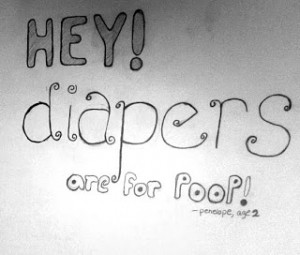 HEY!
diapers
are for POOP!
-penelope, age 2